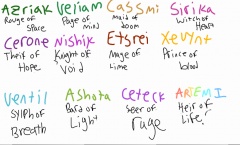 Azriak Veriam Cassmi Sirika
Rouge of Page of maid of Witch of
Space mind doom Heart
Cerone Nishik Etsrei Xevynt
Theif of Knight of Mage of Prince of
Hope Void time blood
Ventil Ashota Ceteck ARTEMI
Sylph of Bard of Seer of Heir of
Breath Light rage Life?